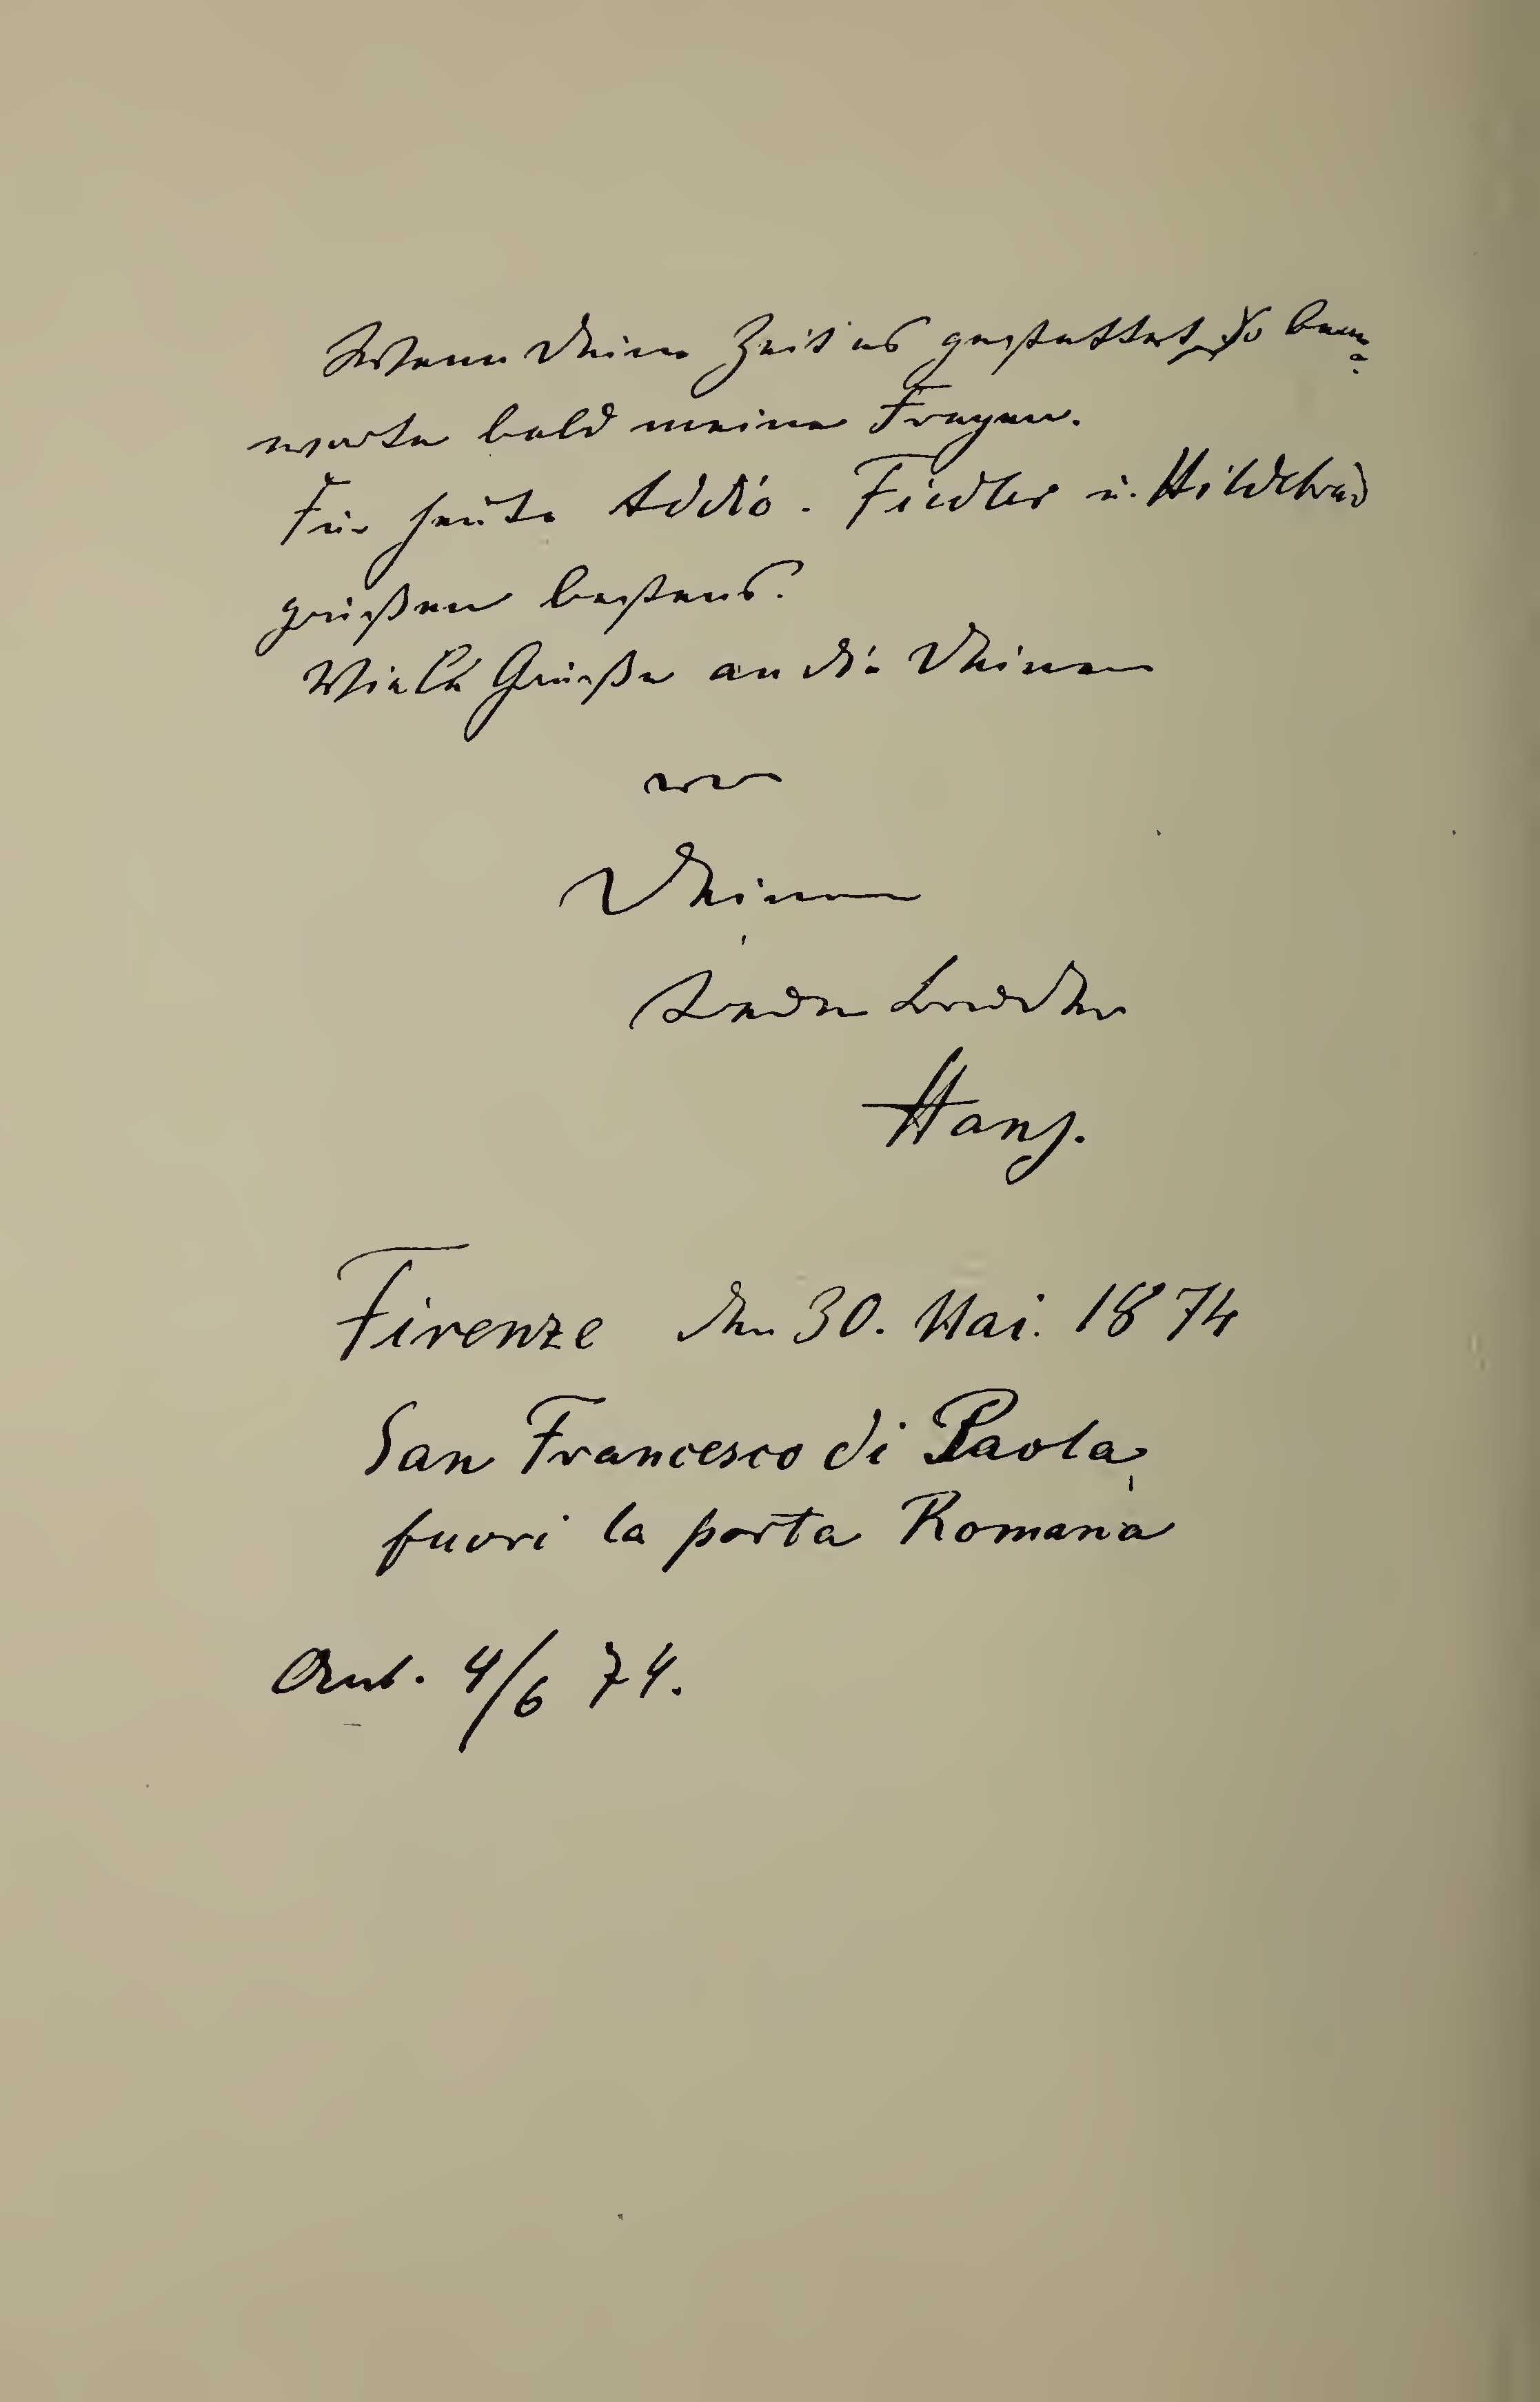 Wenn Deine Zeit es gestattet, so beant-
worte bald meine Fragen.
Für heute Addio. Fiedler u. Hildebrand
grüßen bestens.
Viele Grüße an die Deinen
von
Deinem
treuen Bruder
Hans.
Firenze den 30. Mai. 1874
San Francesco di Paola,
fuori la porta Romana
Ant. 4/6 74.